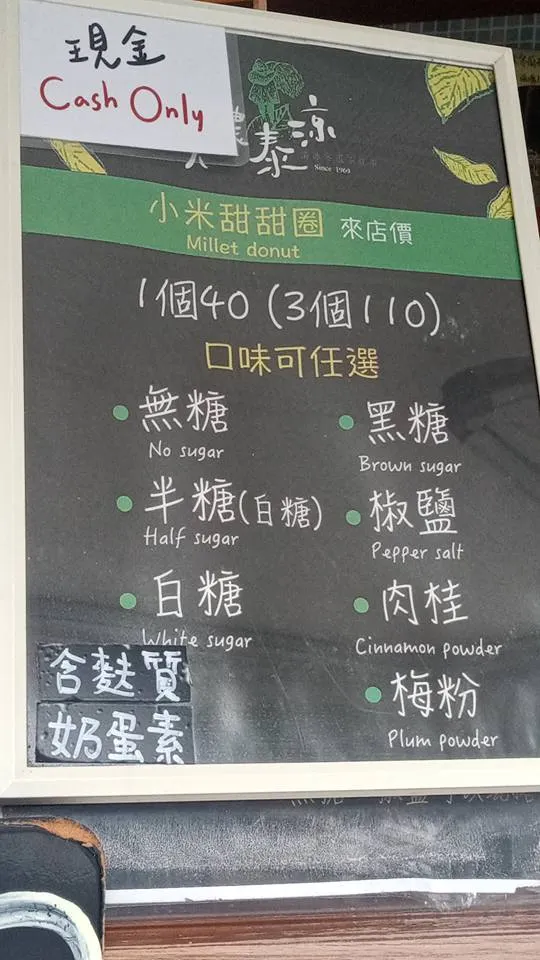 現金
Cash Only
泰涼
Since 1960
小米甜甜圈 來店價
Millet donut
1個40 (3個110)
口味可任選
無糖
No sugar
半糖(白糖)
Half sugar
白糖
White sugar
黑糖
Brown sugar
椒鹽
Pepper salt
肉桂
Cinnamon powder
梅粉
Plum powder
含麩質
奶蛋素